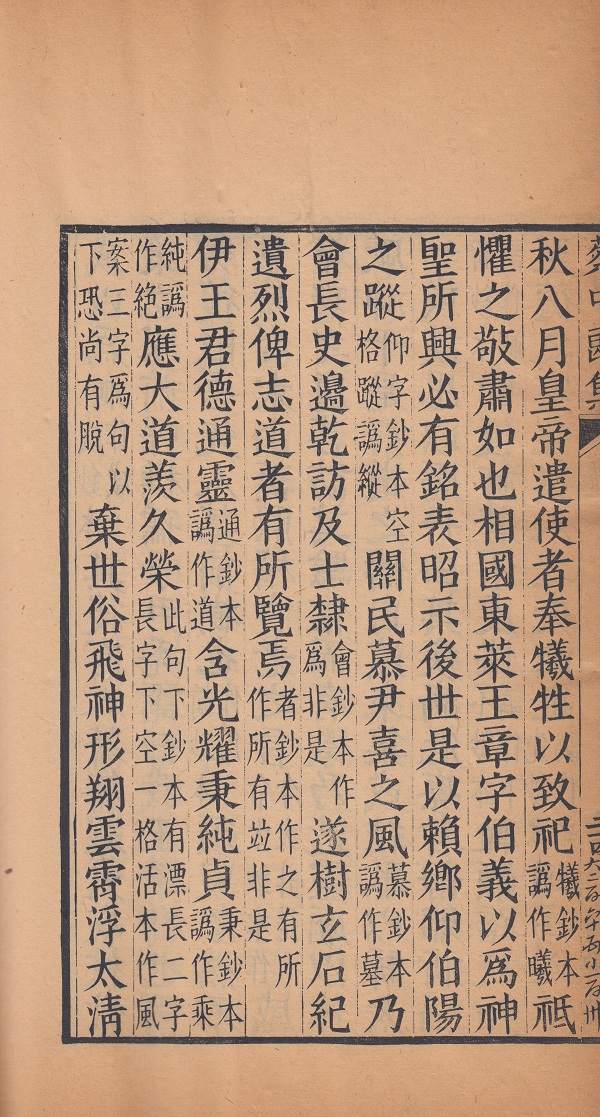 秋八月皇帝遣使者奉犧牲以致祀犧鈔本譌作曦祗
懼之敬肅如也相國東萊王章字伯義以爲神
聖所興必有銘表昭示後世是以賴鄉仰伯陽
之蹤仰字鈔本空格蹤譌縱關民慕尹喜之風慕鈔本譌作墓乃
會長史邊乾訪及士隸會鈔本作爲非是遂樹玄石紀
遺烈俾志道者有所覽焉者鈔本作之有所作所有竝非是
伊王君德通靈通鈔本譌作道含光耀秉純貞秉鈔本譌作乘
純譌作絶應大道羨久榮此句下鈔本有漂長二字長字下空一格活本作風
案三字爲句以下恐尚有脫棄世俗飛神形翔雲霄浮太清